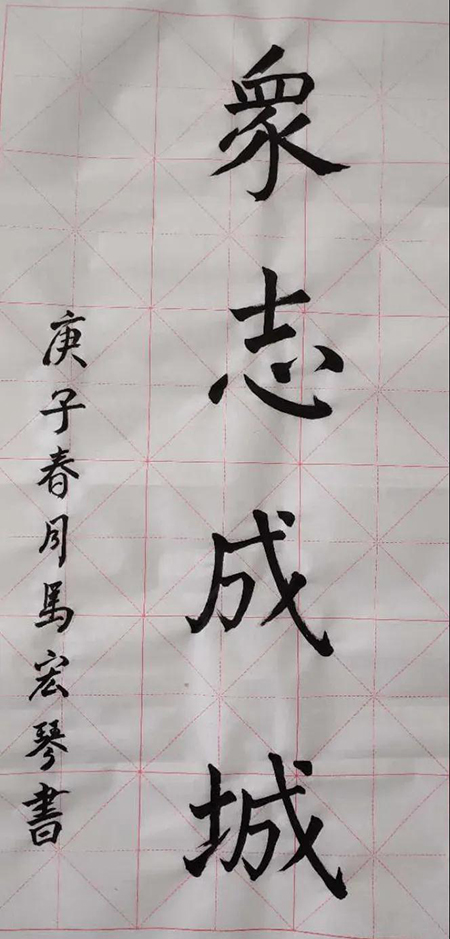 眾志成城
庚子春月馬宏琴書